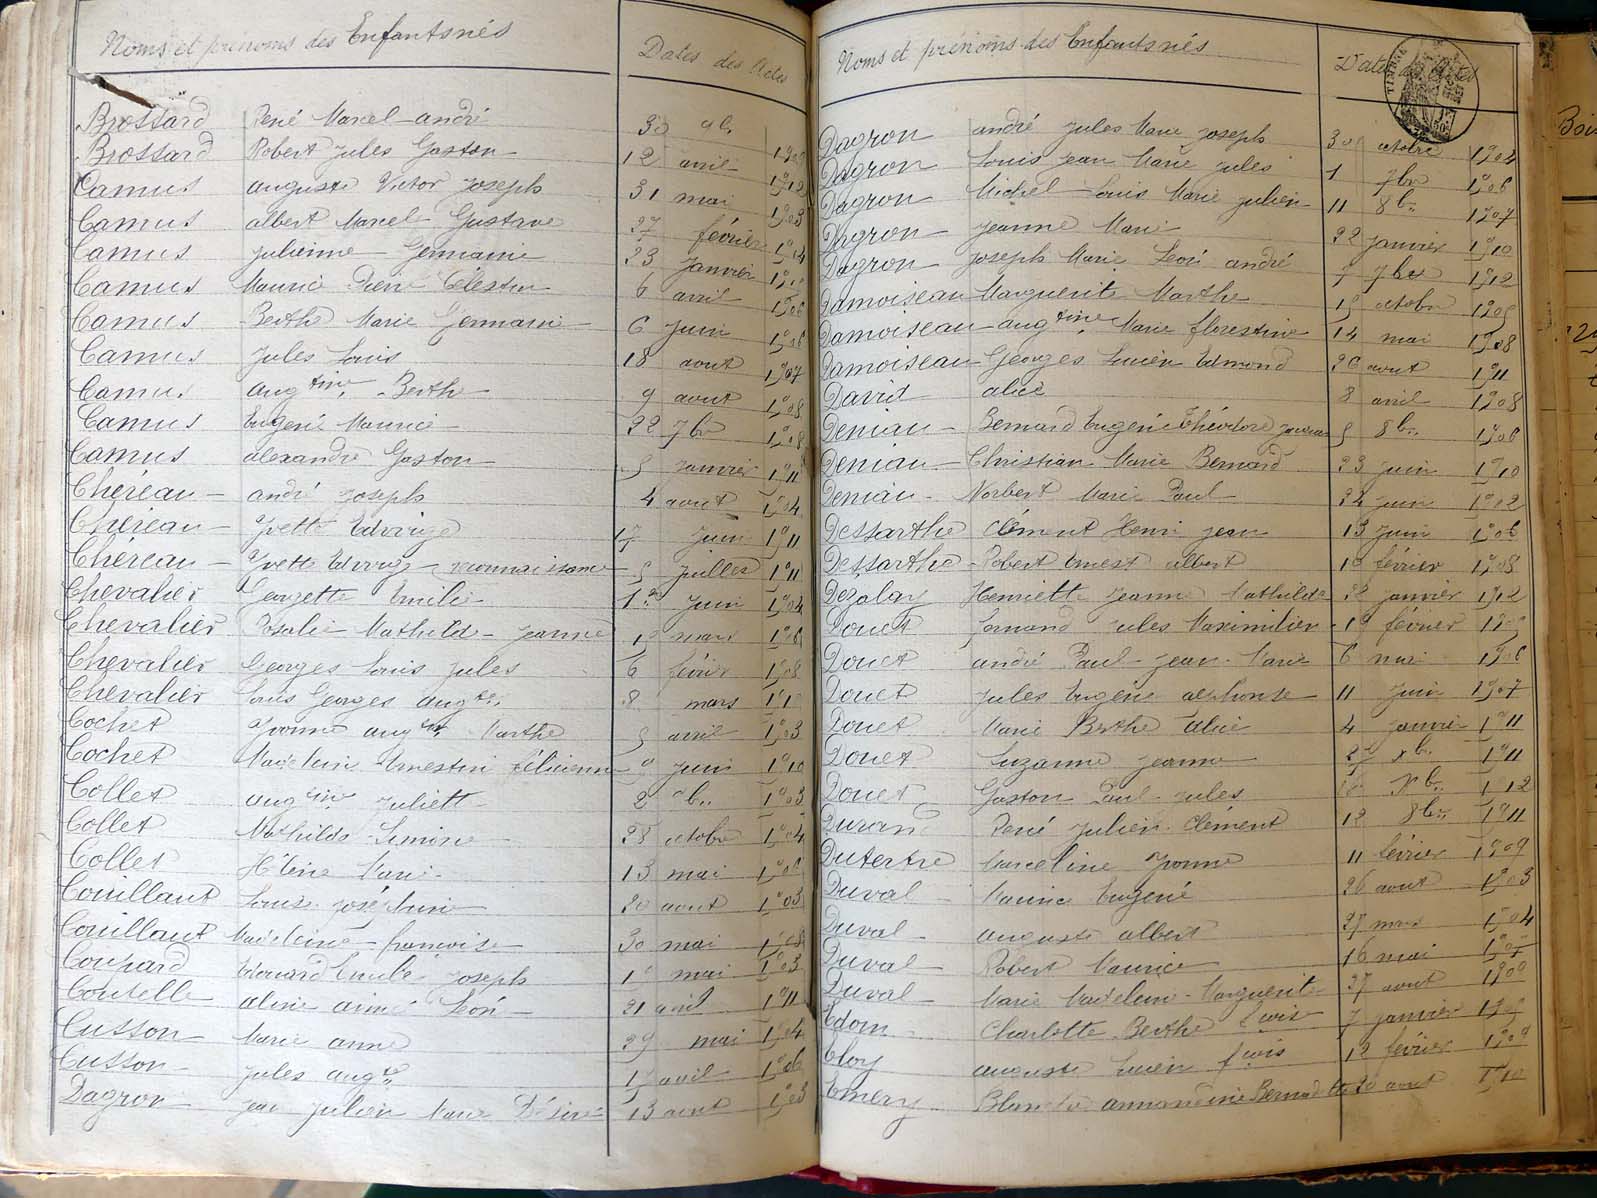 Noms et prénoms des Enfants nés Dates des Actes
Brossard René Marcel André 30 9b.
Brossard Robert Jules Gaston 12 avril 1912
Camus auguste Victor Joseph 31 mai 1903
Camus albert Marcel Gustave 27 février 1904
Camus Julienne Germaine 23 Janvier
Camus Maurice Pierre Célestin 6 avril 1906
Camus Berthe Marie Germaine 6 Juin 1906
Camus Jules Louis 18 aout 1907
Camus augtine Berthe 9 aout 1908
Camus Eugène Maurice 22 7b 1908
Camus alexandre Gaston 5 janvier 1911
Chéreau andré Joseph 4 aout 1904
Chéreau Yvette Edwige 17 Juin 1911
Chéreau Yvette Edwige reconnaissance 5 Juillet 1911
Chevalier Georgette Emilie 1er Juin 1904
Chevalier Rosalie Mathilde Jeanne mars 1906
Chevalier Georges Louis Jules 6 février 1908
Chevalier Louis Georges augte 8 mars
Cochet Yvonne augtine Marthe 5 avril 1903
Cochet Madeleine Ernestine Félicienne Juin 1910
Collet augtine Juliette 2 1903
Collet Mathilde Simone 28 octobre 1904
Collet Hélène Marie 13 mai 1906
Couillaut Louise Joséphine 20 aout 1903
Couillaut Madeleine françoise 30 mai 1908
Coupard Edouard Emile Joseph mai 1903
Coutelle aline aimé Léon 21 avril 1911
Cusson Marie anne 29 mai 1904
Cusson Jules augte 17 avril 1906
Dagron Jean Julien Marie Désiré 13 aout 1903
Noms et prénoms des Enfants nés
Dagron andré Jules Marie Joseph 30 octobre 1904
Dagron Louis Jean Marie Jules 1 7bre 1906
Dagron Michel Louis Marie Julien 11 8b. 1907
Dagron Jeanne Marie 22 janvier 1910
Dagron Joseph Marie Léon andré 7 7bre 1912
Damoiseau Marguerite Marthe 15 octobre 1905
Damoiseau augtine Marie florestine 14 mai 1908
Damoiseau Georges Lucien Edmond 26 aout 1911
David alice 8 avril 1908
Deniau Bernard Eugène Théodore 5 8b. 1906
Deniau Christian Marie Bernard 23 Juin 1910
Deniau Norbert Marie Paul 24 Juin 1902
Dessarthe Clément Henri Jean 13 Juin 1906
Dessarthe Robert Ernest albert février 1908
Dezalay Henriette Jeanne Mathilde 22 janvier 1912
Douet fernand Jules Maximilien 19 février 1905
Douet andré Paul Jean Marie 6 mai 1906
Douet Jules Eugène alphonse 11 Juin 1907
Douet Marie Berthe Alice 4 Janvier 1911
Douet Suzanne Jeanne 27 xb. 1911
Douet Gaston Paul Jules 16 1912
Durand René Julien Clément 12 8bre 1911
Dutertre Marceline Yvonne 11 février 1909
Duval Maurice Eugène 26 aout 1903
Duval auguste albert 27 mars 1904
Duval Robert Maurice 16 mai
Duval Marie Madeleine Marguerite 27 aout 1909
Edom Charlotte Berthe Louise 7 janvier 1905
Eloy auguste Lucien fçois 12 février 1909
Emery Blanche armandine Bernadette 20 aout 1910